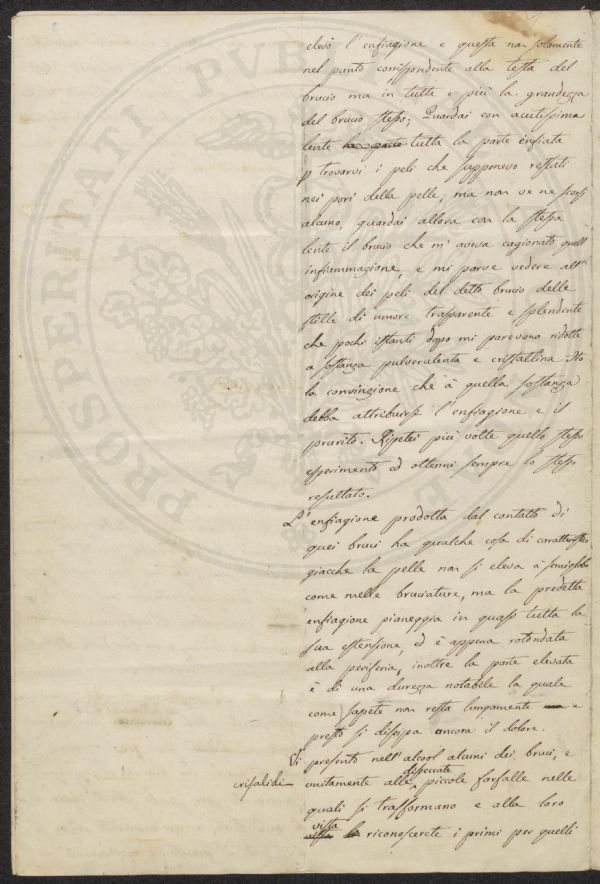 elevò l'enfiagione e questa non solamente
nel punto corrispondente alla testa del
brucio ma in tutta e più la grandezza
del brucio stesso; Guardai con acutissima
lente tutta la parte enfiata
p trovarvi i peli che supponevo restati
nei pori della pelle, ma non ve ne scorsi
alcuno, guardai allora con la stessa
lente il brucio che m'aveva cagionato quell'
infiammazione, e mi parve vedere all'
origine dei peli del detto brucio delle
stille di umore trasparente e splendente
che pochi istanti dopo mi parevano ridotte
a sostanza pulverulenta e cristallina. Ho
la convinzione che à quella sostanza
debba attribuirsi l'enfiagione e il
prurito. Ripetei più volte quello stesso
esperimento ed ottenni sempre lo stesso
resultato.
L'enfiagione prodotta dal contatto di
quei bruci ha qualche cosa di caratteristico
giacche la pelle non si eleva a semiglobo
come nelle bruciature, ma la predetta
enfiagione pianeggia in quasi tutta la
sua estensione, ed è appena rotondata
alla periferia, inoltre la parte elevata
è di una durezza notabile la quale
come sapete non resta lungamente e
presto si dissipa ancora il dolore.
Vi presento nell'alcool alcuni dei bruci, e
disseccate
crisalidi unitamente alle piccole farfalle nelle
quali si trasformano e alla loro
vista
riconoscerete i primi per quelli
PROSPERITATI PVB